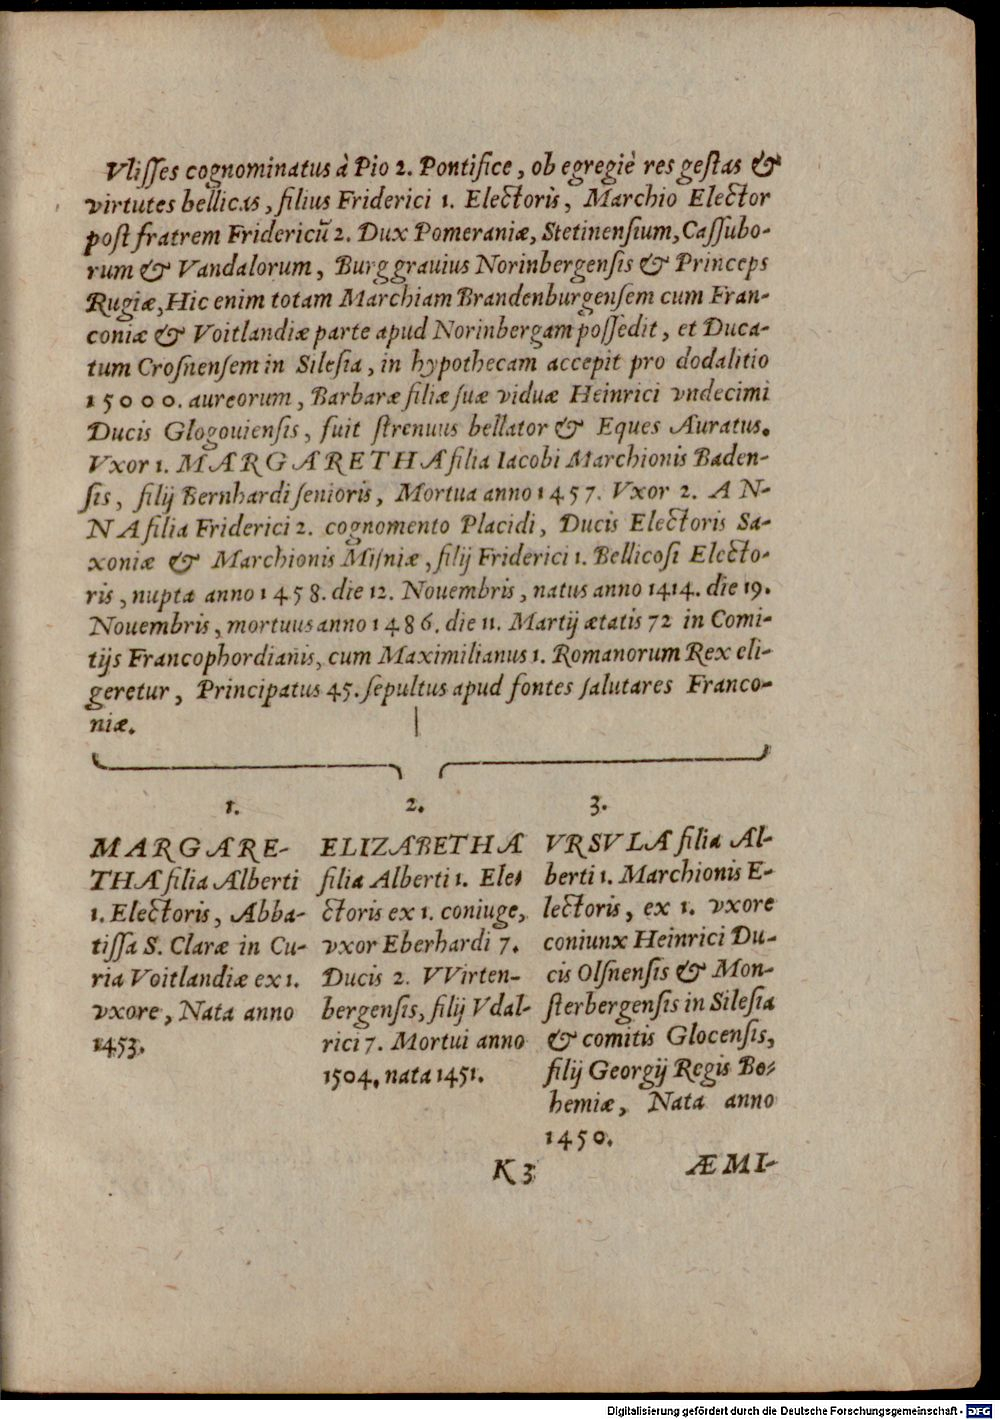 Vlißes cognominatus à Pio 2. Pontifice, ob egregiè res gestas &
virtutes bellicas, filius Friderici 1. Electoris, Marchio Elector
post fratrem Fridericū 2. Dux Pomeraniæ, Stetinensium, Cassubo-
rum & Vandalorum, Burggrauius Norinbergensis & Princeps
Rugiæ, Hic enim totam Marchiam Brandenburgensem cum Fran-
coniæ & Voitlandiæ parte apud Norinbergam possedit, et Duca-
tum Crosnensem in Silesia, in hypothecam accepit pro dodalitio
15000. aureorum, Barbaræ filiæ suæ viduæ Heinrici vndecimi
Ducis Glogouiensis, fuit strenuus bellator & Eques Auratus.
Vxor 1. MARGARETHA filia Iacobi Marchionis Baden-
sis, filij Bernhardi senioris, Mortua anno 1457. Vxor 2. AN-
NA filia Friderici 2. cognomento Placidi, Ducis Electoris Sa-
xoniæ & Marchionis Misniæ, filij Friderici 1. Bellicosi Electo-
ris, nupta anno 1458. die 12. Nouembris, natus anno 1414. die 19.
Nouembris, mortuus anno 1486. die 11. Martij ætatis 72 in Comi-
tijs Francophordianis, cum Maximilianus 1. Romanorum Rex eli-
geretur, Principatus 45. sepultus apud fontes salutares Franco-
niæ.
1.
MARGARE-
THA filia Alberti
1. Electoris, Abba-
tissa S. Claræ in Cu-
ria Voitlandiæ ex 1.
vxore, Nata anno
1453.
2.
ELIZABETHA
filia Alberti 1. Ele-
ctoris ex 1. coniuge,
vxor Eberhardi 7.
Ducis 2. VVirten-
bergensis, filij Vdal-
rici 7. Mortui anno
1504. nata 1451.
3.
VRSVLA filia Al-
berti 1. Marchionis E-
lectoris, ex 1. vxore
coniunx Heinrici Du-
cis Olsnensis & Mon-
sterbergensis in Silesia
& comitis Glocensis,
filij Georgij Regis Bo-
hemiæ, Nata anno
1450.
K 3
ÆMI-
Digitalisierung gefördert durch die Deutsche Forschungsgemeinschaft - DFG